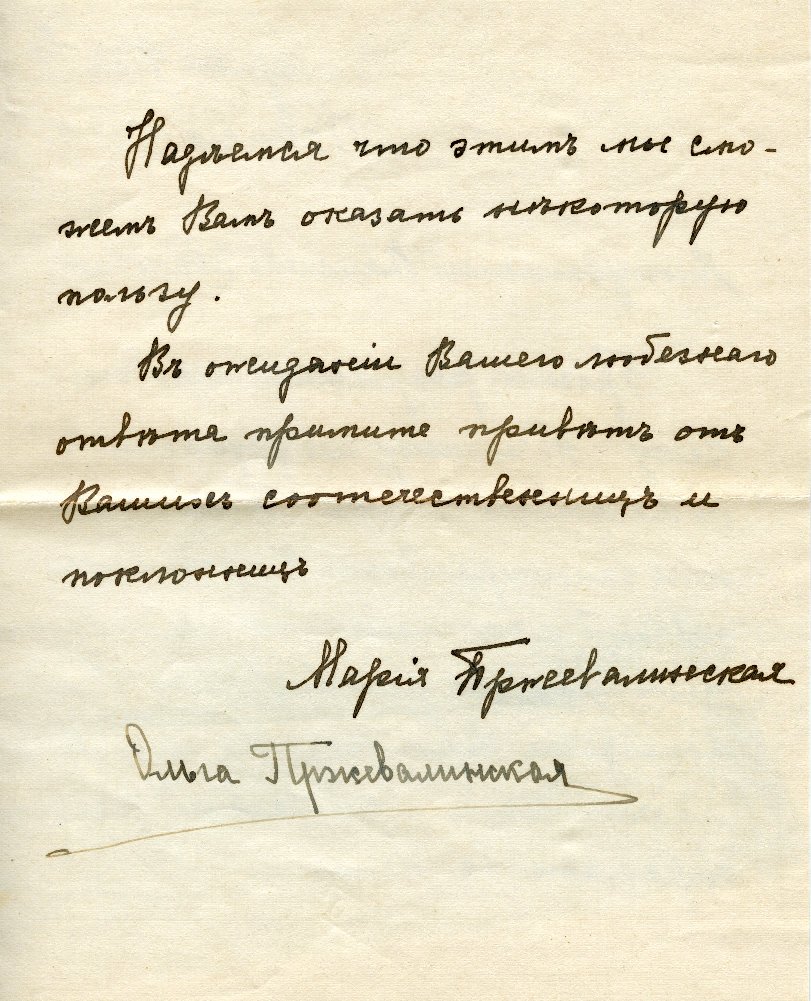 Надѣемся что этимъ мы смо-
жемъ Вамъ оказать нѣкоторую
пользу.
Въ ожиданіи Вашего любезнаго
отвѣта примите привѣтъ отъ
Вашихъ соотечественницъ и
поклонницъ
Марія Пржевалинская
Ольга Пржевалинская